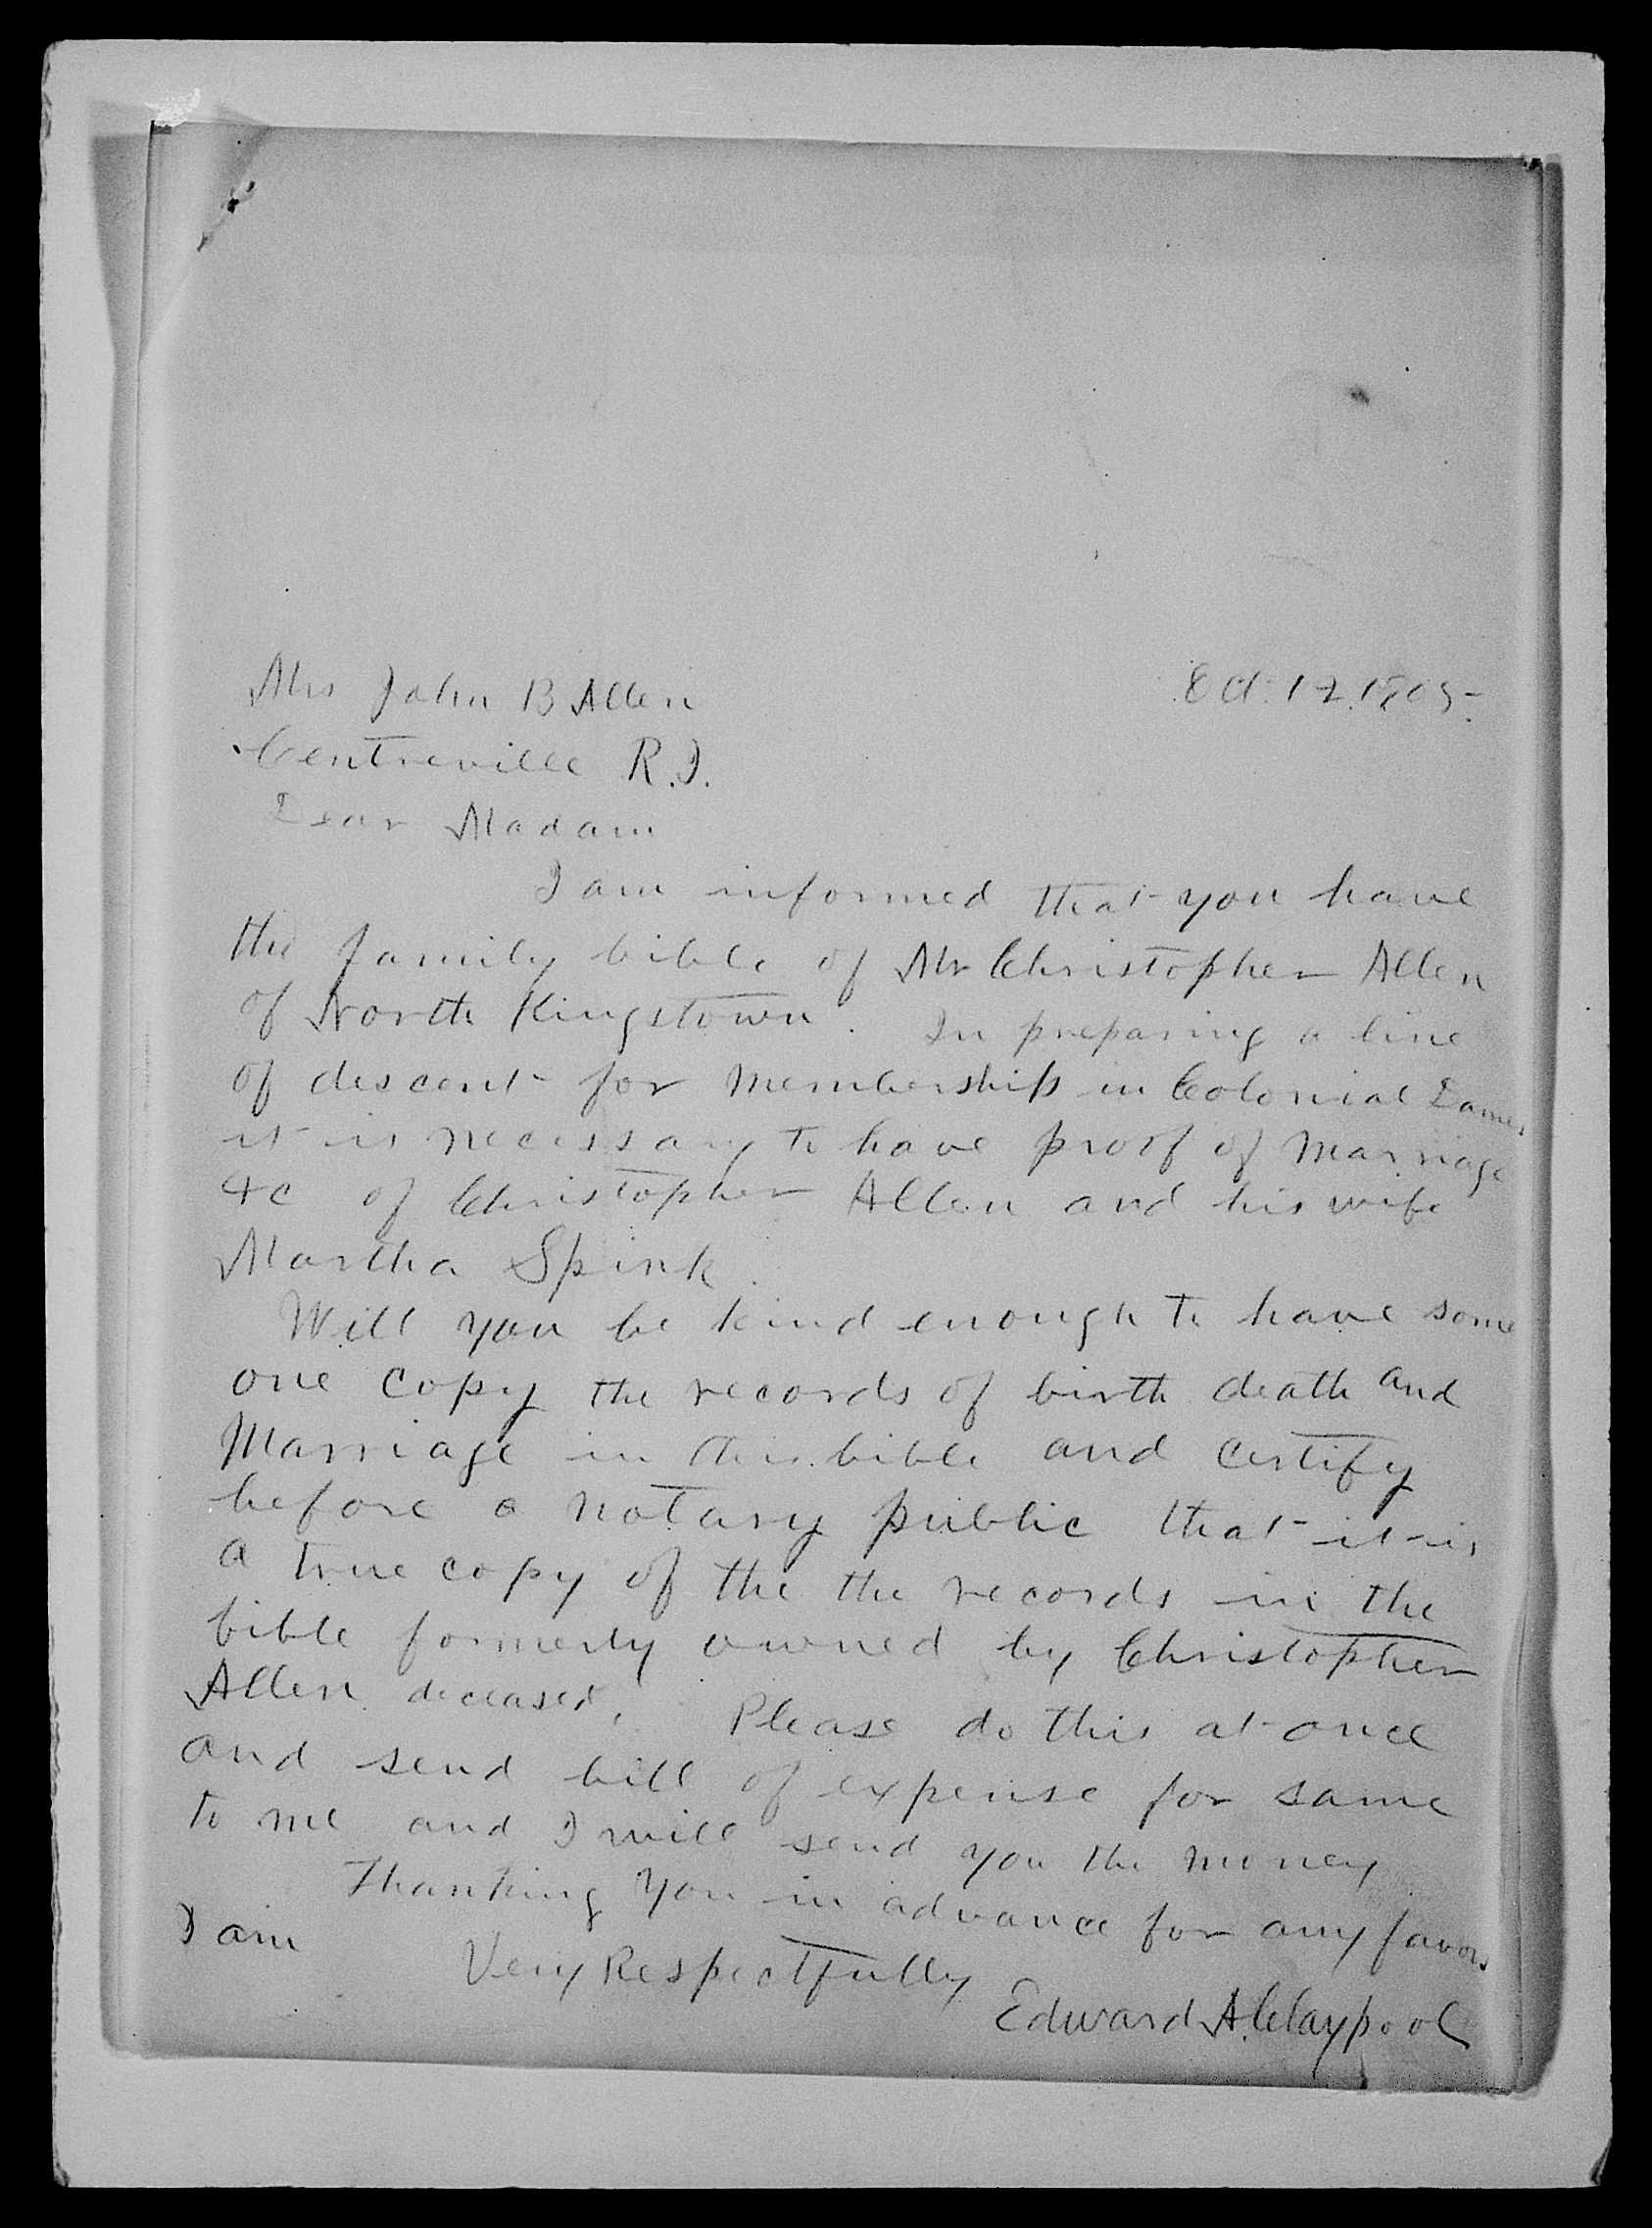 Mrs John B Allen
Oct. 12. 1905.
Centreville R.I.
Dear Madam
I am informed that you have
the family bible of Mr Christopher Allen
of North Kingstown. In preparing a line
of descent for membership in Colonial Dames
it is necessary to have proof of marriage
&c of Christopher Allen and his wife
Martha Spink.
Will you be kind enough to have some
one copy the records of birth death and
Marriage in this bible and certify
before a notary public that it is
a true copy of the the records in the
bible formerly owned by Christopher
Allen deceased. Please do this at once
and send bill of expense for same
to me and I will send you the money
Thanking you in advance for any favors
I am
Very Respectfully
Edward A. Claypool